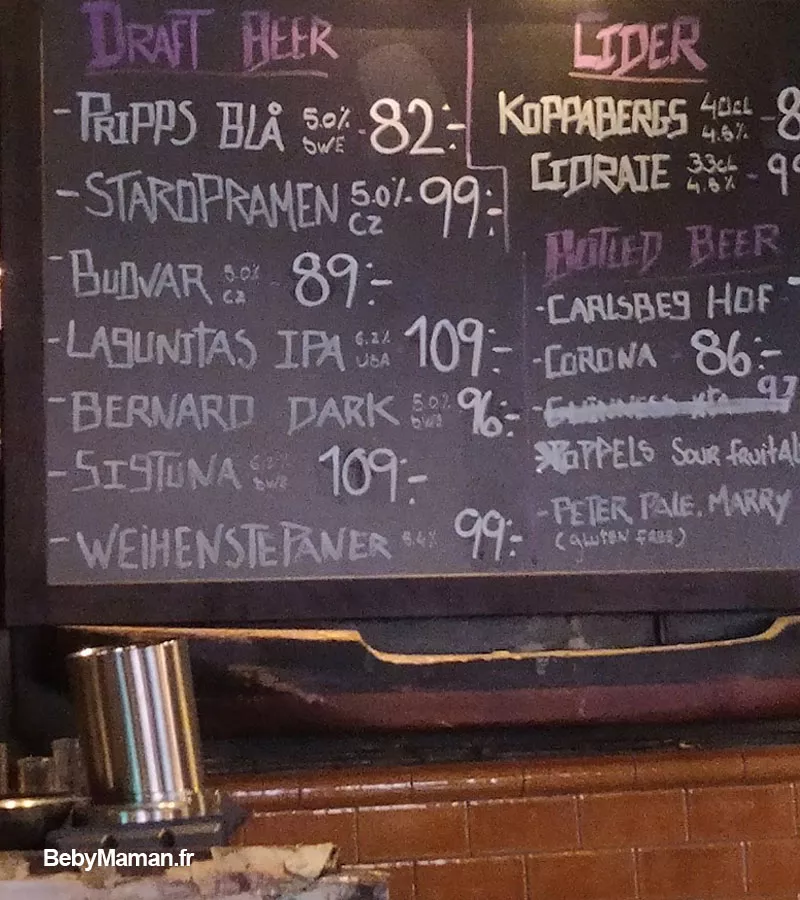 DRAFT BEER
- PRIPPS BLÅ 5.0% SWE - 82:-
- STAROPRAMEN 5.0% CZ 99:-
- BUDVAR 5.0% CZ 89:-
- LAGUNITAS IPA 6.2% USA 109:-
- BERNARD DARK 5.0% 96:-
- SIGTUNA 109:-
- WEIHENSTEPANER 5.4% 99:-
CIDER
KOPPABERGS 40cL 4.5% - 8
CIDRAIE 33cL 4.5% - 99
BOTLED BEER
- CARLSBEG HOF -
- CORONA 86:-
97
OPPELS SOUR FRUITAL
- PETER, PALE. MARRY
(GLUTEN FREE)
BebyMaman.fr